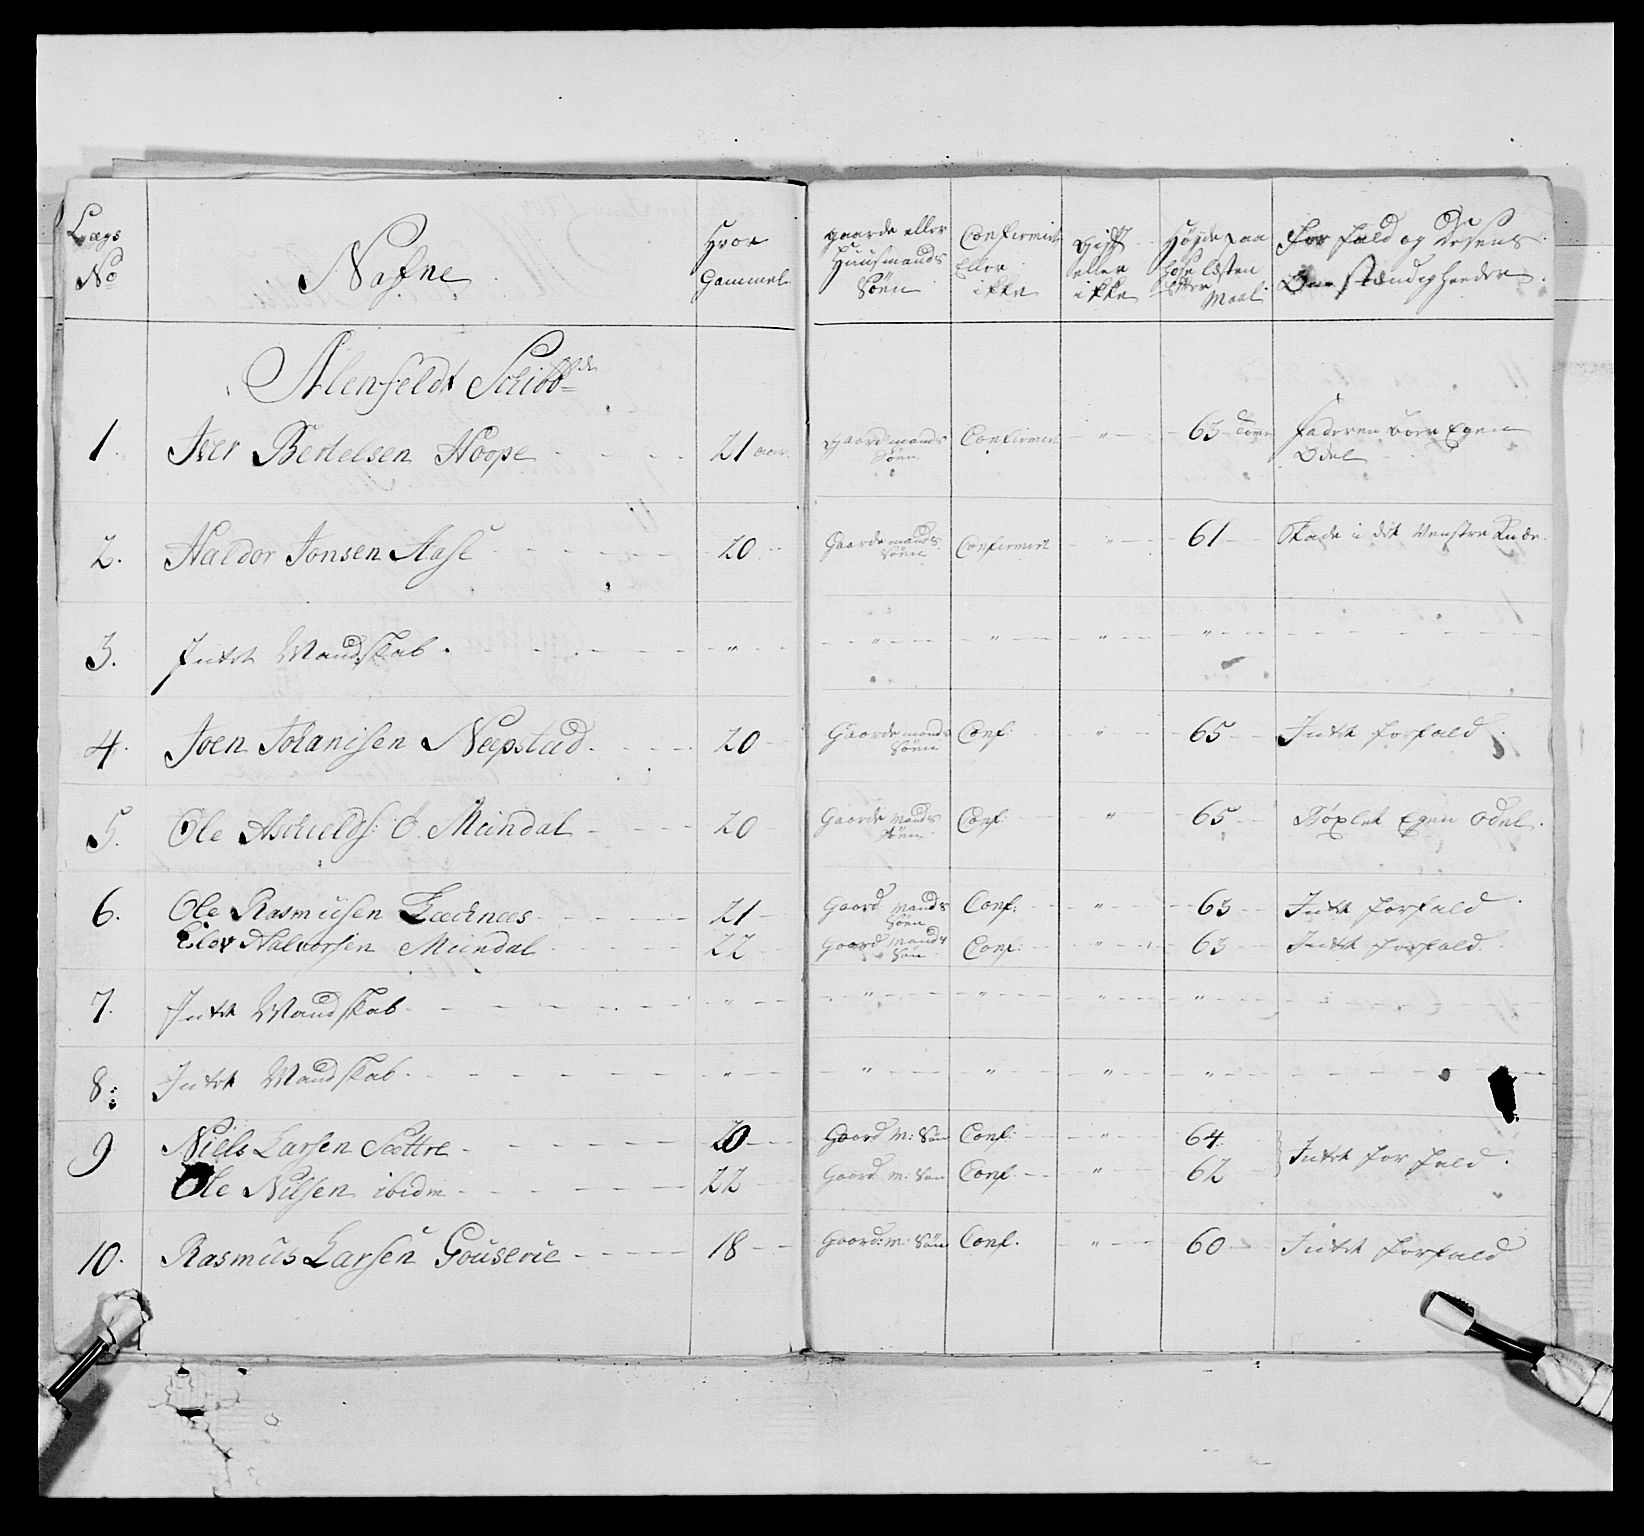 Lægs No
Nafne
Hvor Gammel
gaarde eller Huusmands Søen
Confirmirt Eller ikke
Gift eller ikke
For fald og Desens Omstændigheeder
Alenfeldt Schibb:de
1. Iver Bertelsen Hoope 21 aar gaardmands Søen Confirmirt " 63 Faderen boer Egen Odel
2. Haldor Jonsen Aase 20 Gaardemands Søen Confirmirt " 61 Skade i det Venstre Knæe
3. Intet Mandskab " " " " "
4. Joen Johanisen Nepstad 20 Gaardemands Søen Conf: " 65 Intet forfald
5. Ole Aschields: Ö. Mündal 20 Gaardemands Søen Conf " 65 Egen Odel
6. Ole Rasmusen 21 Gaard Mands Søen Conf: " 63 Intet forfald
Elev Halvorsen Mündal 22 Gaard Mands Søn Conf: " 63 Intet forfald
7. Intet Mandskab " " " " "
8. Intet Mandskab " " " " "
9 Niels Larsen Sættre 20 Gaard M: Søn Conf: " 64 Intet for fald
Ole Nilsen ibidm 22 Gaard M: Søn Conf. " 62
10. Rasmus Larsen 18 Gaard: M: Søn Conf. " 60 Intet forfald